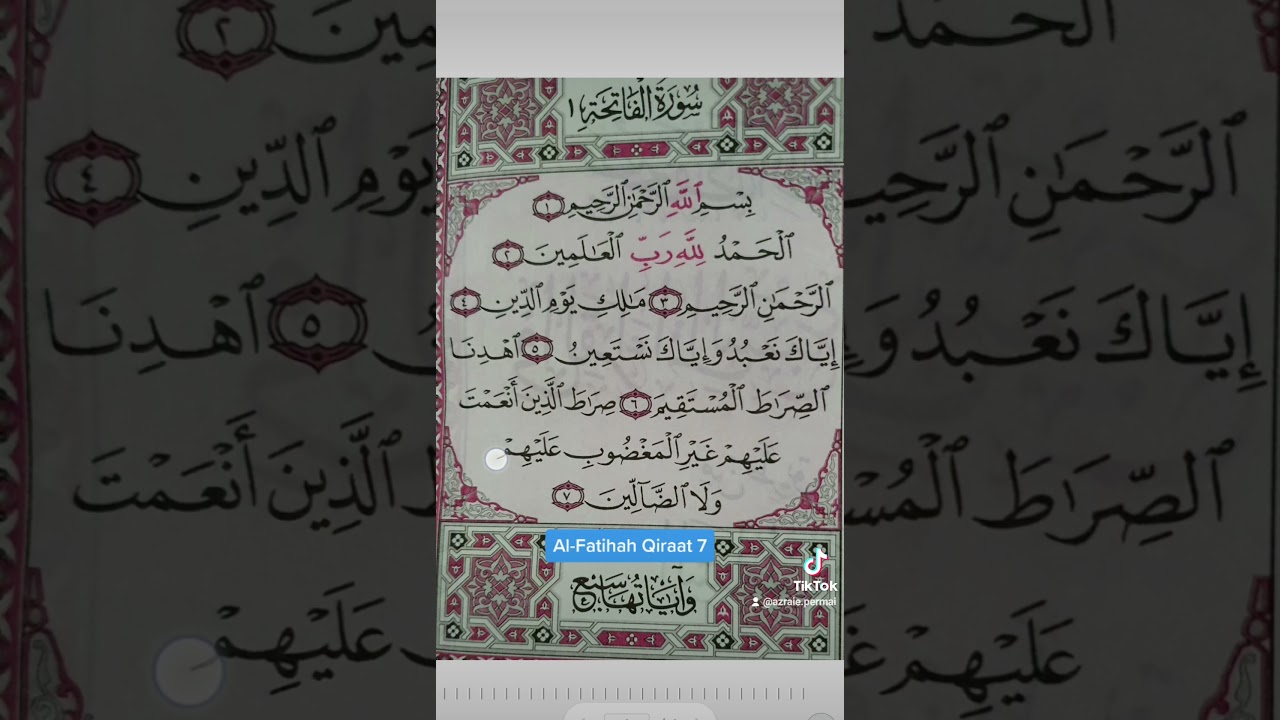 سُورَةُ الْفَاتِحَةِ ١
بِسْمِ ٱللَّهِ ٱلرَّحْمَٰنِ ٱلرَّحِيمِ ١
ٱلْحَمْدُ لِلَّهِ رَبِّ ٱلْعَـٰلَمِينَ ٢
ٱلرَّحْمَٰنِ ٱلرَّحِيمِ ٣ مَـٰلِكِ يَوْمِ ٱلدِّينِ ٤
إِيَّاكَ نَعْبُدُ وَإِيَّاكَ نَسْتَعِينُ ٥ ٱهْدِنَا
ٱلصِّرَٰطَ ٱلْمُسْتَقِيمَ ٦ صِرَٰطَ ٱلَّذِينَ أَنْعَمْتَ
عَلَيْهِمْ غَيْرِ ٱلْمَغْضُوبِ عَلَيْهِمْ
وَلَا ٱلضَّآلِّينَ ٧
Al-Fatihah Qiraat 7
وَآيَاتُهَا سَبْعٌ
TikTok
@azraie.permai